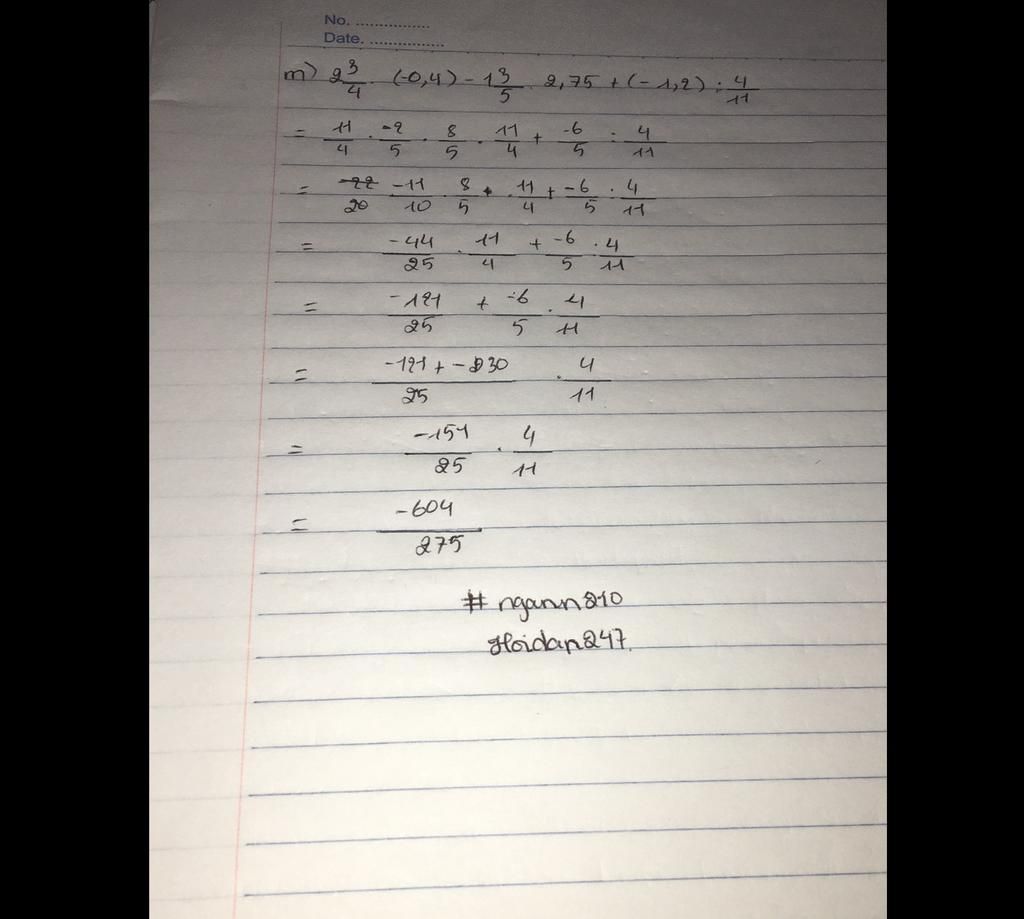 No. ..............
Date. ................
m) 2 3/4 . (-0,4) - 1 3/5 . 2,75 + (-1,2) : 4/11
= 11/4 . -2/5 . 8/5 . 11/4 + -6/5 : 4/11
= -22/20 -11/10 . 8/5 . 11/4 + -6/5 . 4/11
= -44/25 . 11/4 + -6/5 . 4/11
= -121/25 + -6/5 . 4/11
= -121 + -30/25 . 4/11
= -151/25 . 4/11
= -604/275
# ngann210
Hoidap247.